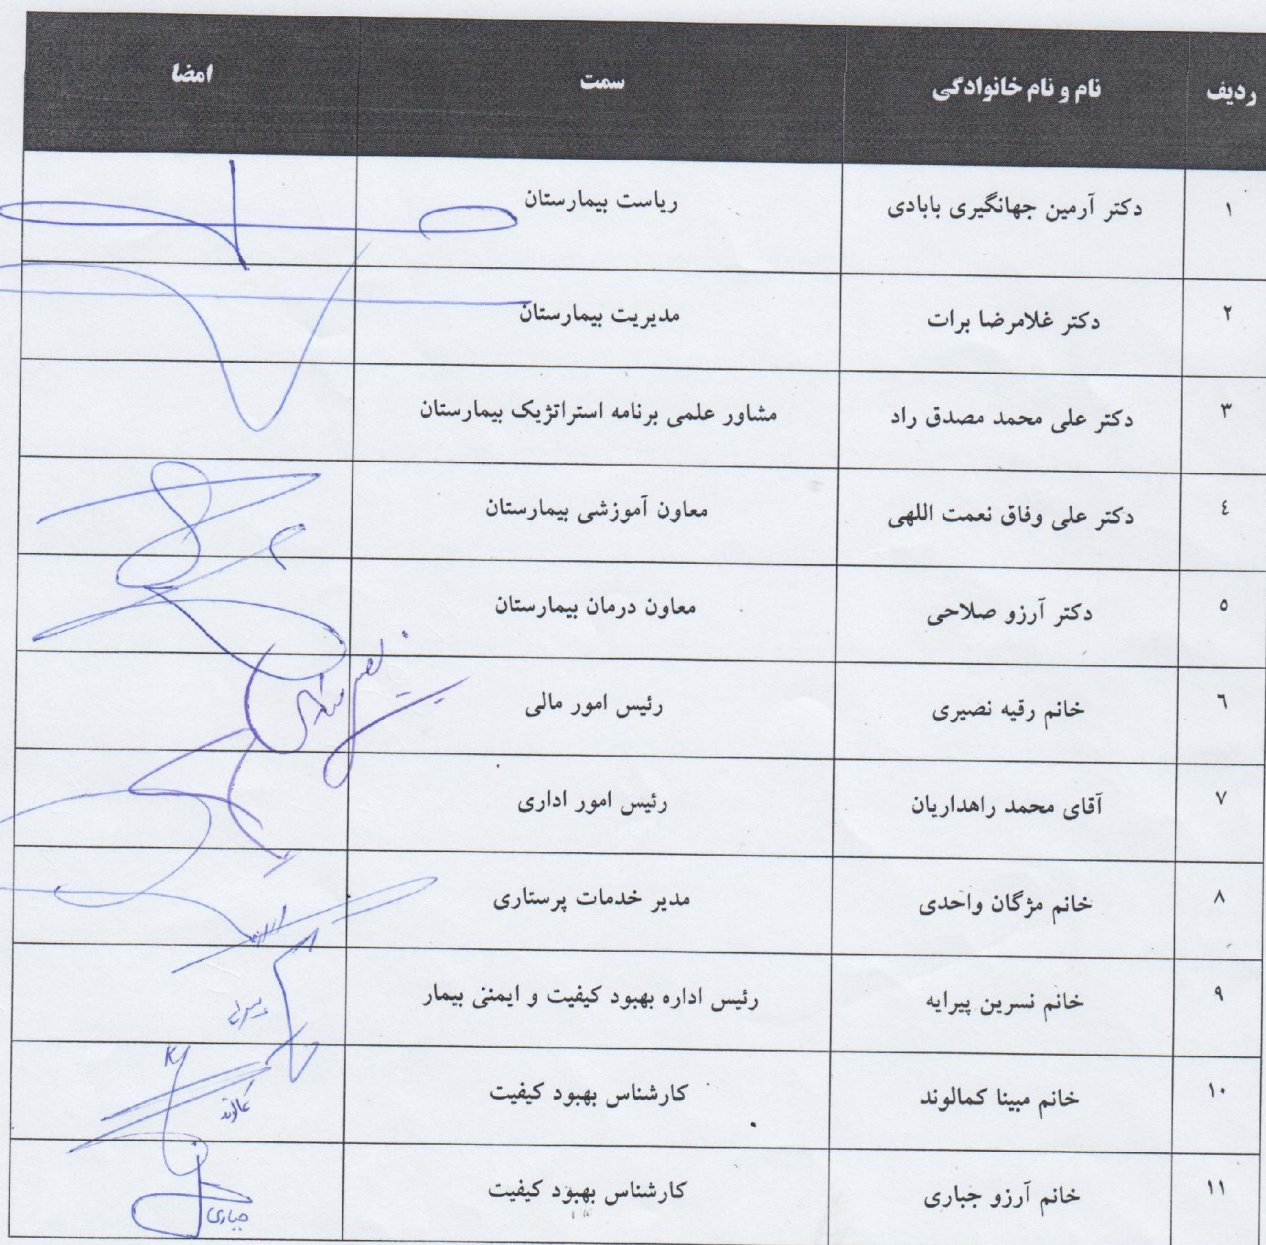 ردیف نام و نام خانوادگی سمت امضا
۱ دکتر آرمین جهانگیری بابادی ریاست بیمارستان
۲ دکتر غلامرضا برات مدیریت بیمارستان
۳ دکتر علی محمد مصدق راد مشاور علمی برنامه استراتژیک بیمارستان
٤ دکتر علی وفاق نعمت اللهی معاون آموزشی بیمارستان
٥ دکتر آرزو صلاحی معاون درمان بیمارستان
٦ خانم رقیه نصیری رئیس امور مالی
۷ آقای محمد راهداریان رئیس امور اداری
۸ خانم مژگان واحدی مدیر خدمات پرستاری
۹ خانم نسرین پیرایه رئیس اداره بهبود کیفیت و ایمنی بیمار
۱۰ خانم مبینا کمالوند کارشناس بهبود کیفیت
۱۱ خانم آرزو جباری کارشناس بهبود کیفیت جباری